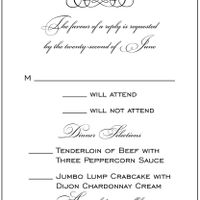 The favour of a reply is requested
by the twenty-second of June
M
will attend
will not attend
Dinner Selections
Tenderloin of Beef with
Three Peppercorn Sauce
Jumbo Lump Crabcake with
Dijon Chardonnay Cream